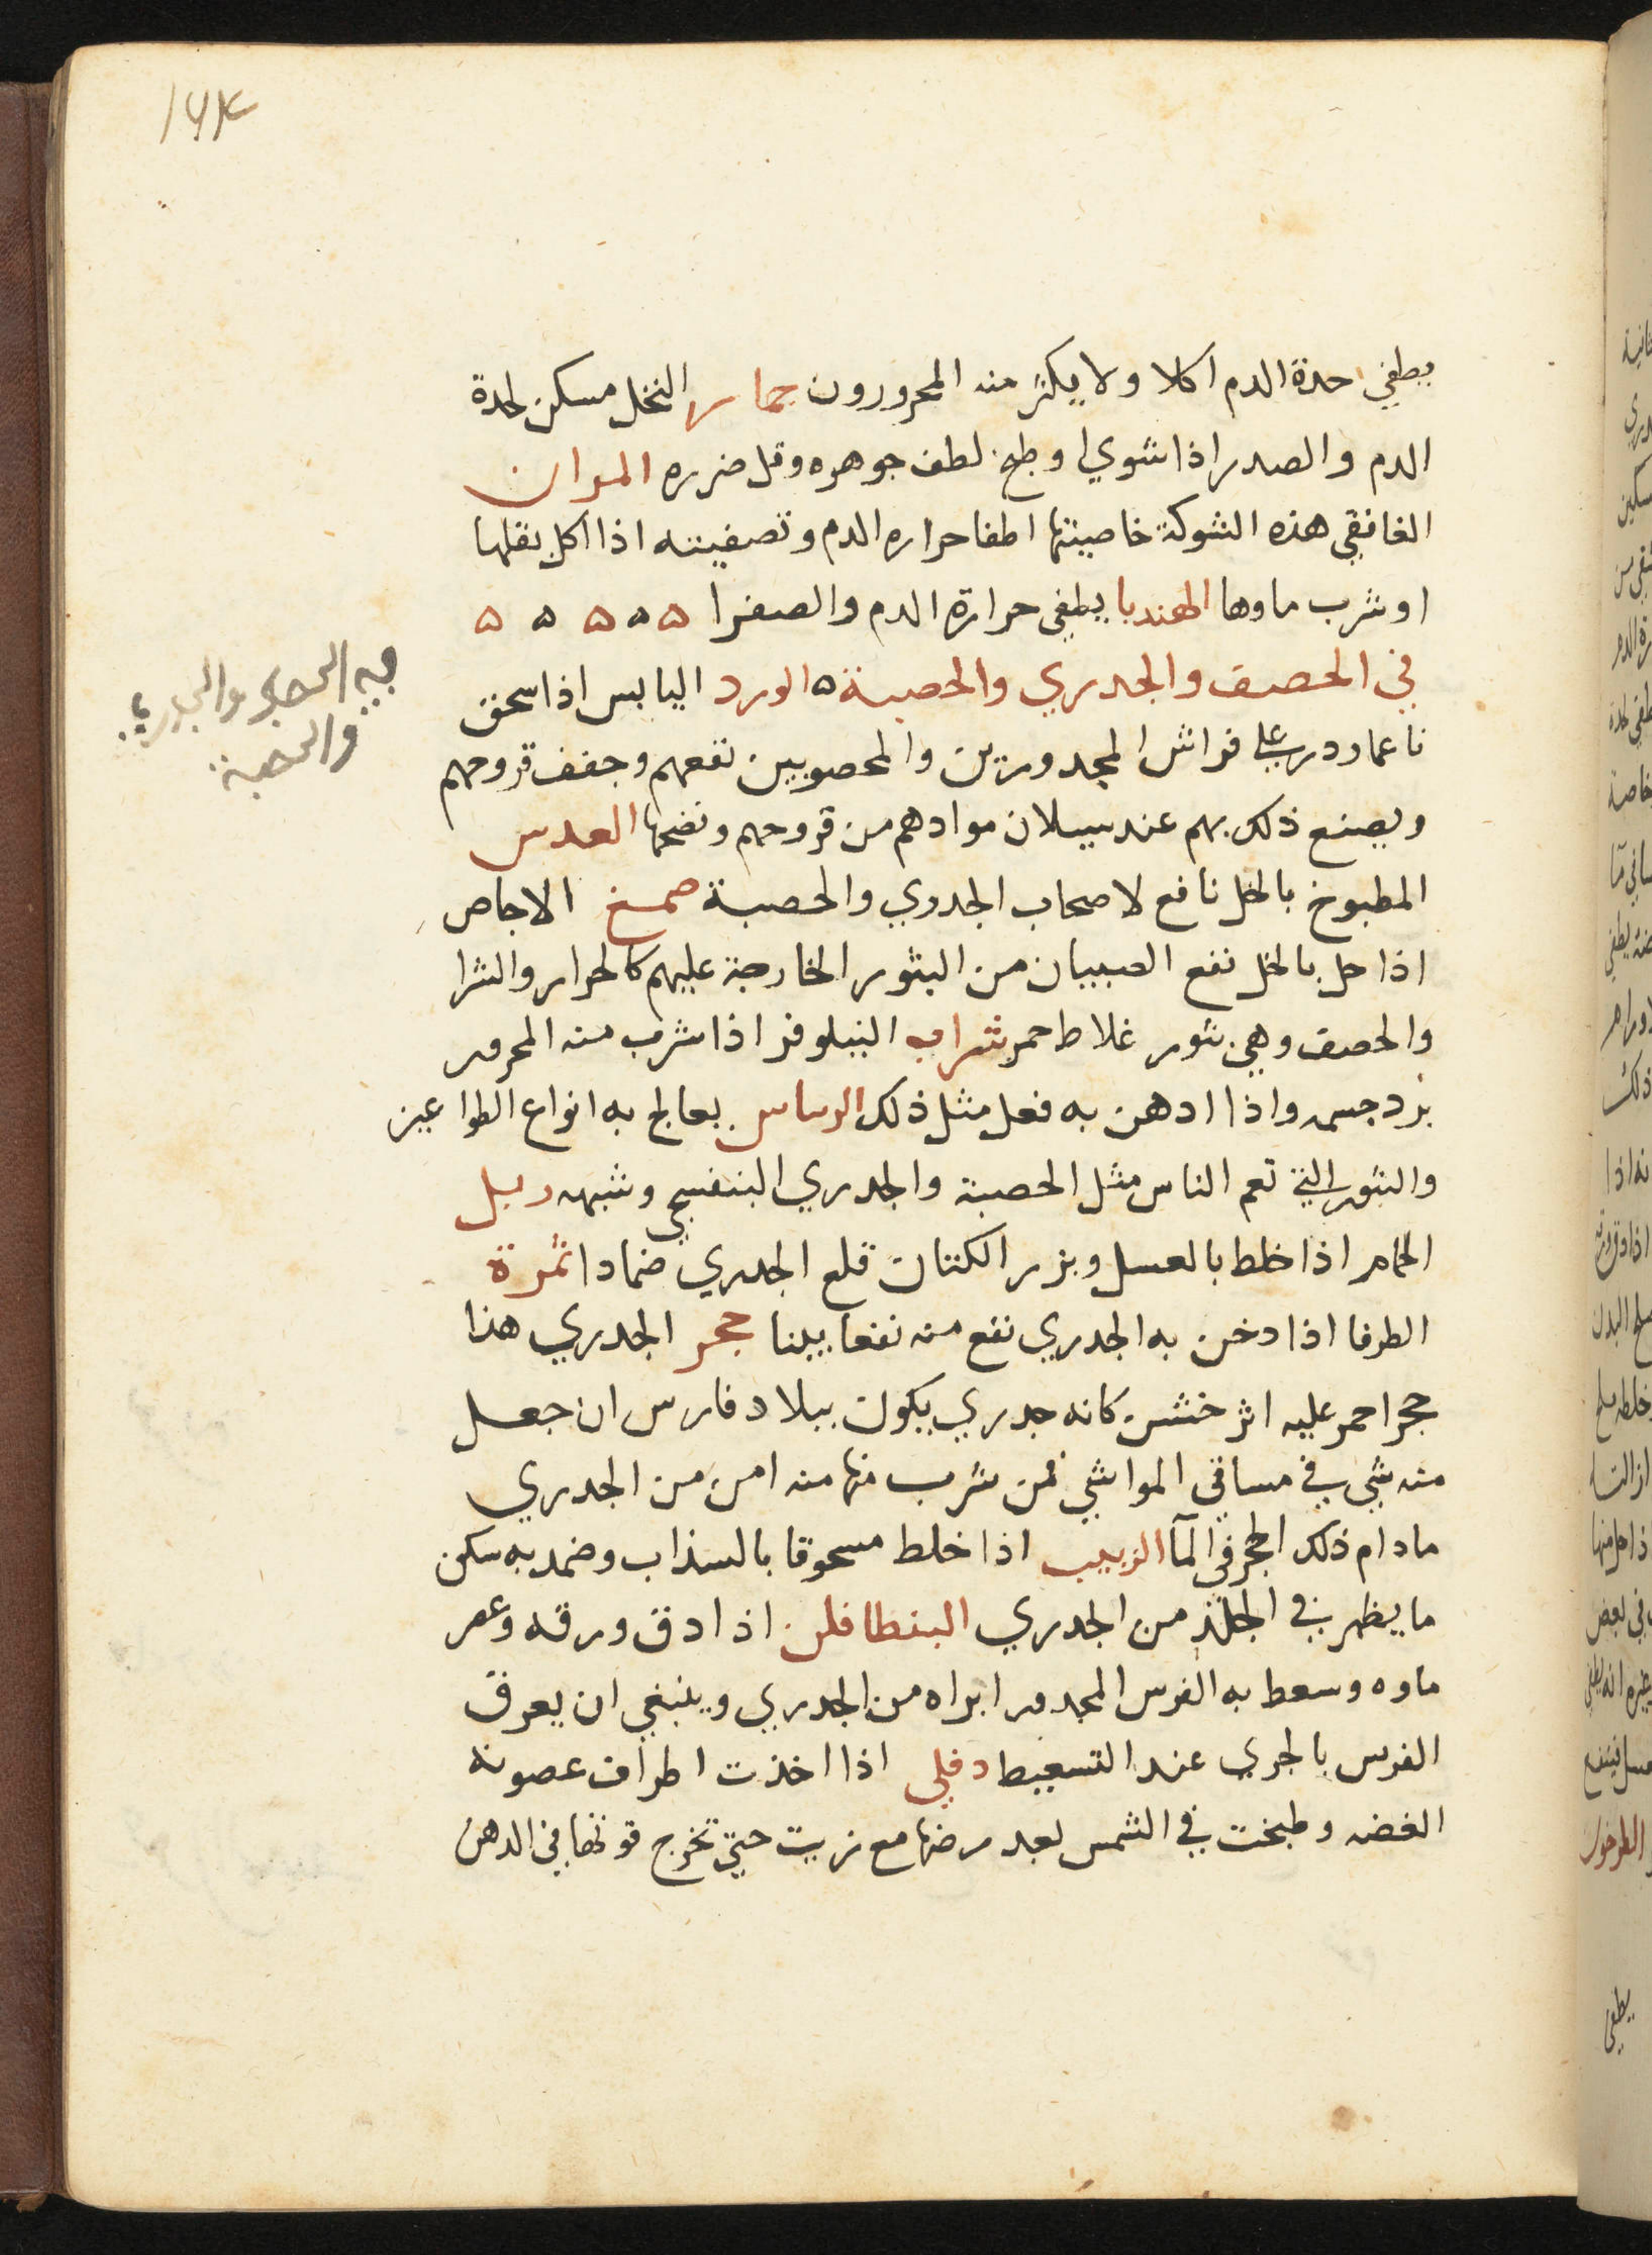 ١٦٤
يطفي حدة الدم اكلا ولا يكثر منه المحرورون جمار النخل مسكن لحدة
الدم والصدر اذا شوي او طبخ لطف جوهره وقل ضرره المران
الغافقي هذه الشوكة خاصيتها اطفا حراره الدم وتصفيته اذا اكل بقلها
او شرب ماوها الهندبا يطفي حرارة الدم والصفرا ه ه ه ه ه
في الحصف والجدري والحصبة ه الورد اليابس اذا سحق
ناعما ودر على فراش المجدورين والمحصوبين نفعهم وجفف قروحهم
ويصنع ذلك بهم عند سيلان موادهم من قروحهم ونضحها العدس
المطبوخ بالخل نافع لاصحاب الجدري والحصبة صمغ الاجاص
اذا حل بالخل نفع الصبيان من البثور الخارجة عليهم كالحرار والشرا
والحصف وهي بثور غلاط حمر شراب النيلوفر اذا شرب منه المحرور
برد جسمه واذا ادهن به فعل مثل ذلك الرساس يعالج به انواع الطواعين
والبثور التي تعم الناس مثل الحصبة والجدري البنفسجي وشبهه زبل
الحمام اذا خلط بالعسل وبزر الكتان قلع الجدري ضمادا ثمرة
الطرفا اذا دخن به الجدري نفع منه نفعا بينا حجر الجدري هذا
حجر احمر عليه اثر خشن كانه جدري يكون ببلاد فارس ان جعل
منه شي في مساقي المواشي فمن شرب منها منه امن من الجدري
مادام ذلك الحجر في المآ الزبيب اذا خلط مسحوقا بالسذاب وضمد به سكن
ما يظهر في الجلد من الجدري البنطافلن اذا دق ورقه وعصر
ماوه وسعط به الفرس المجدور ابراه من الجدري وينبغي ان يعرق
الفرس بالجري عند التسعيط دفلي اذا اخذت اطراف غصونه
الغضه وطبخت في الشمس بعد رضها مع زيت حتى تخرج قوتها في الدهن
فيه الحصف والجدري
والحصبة